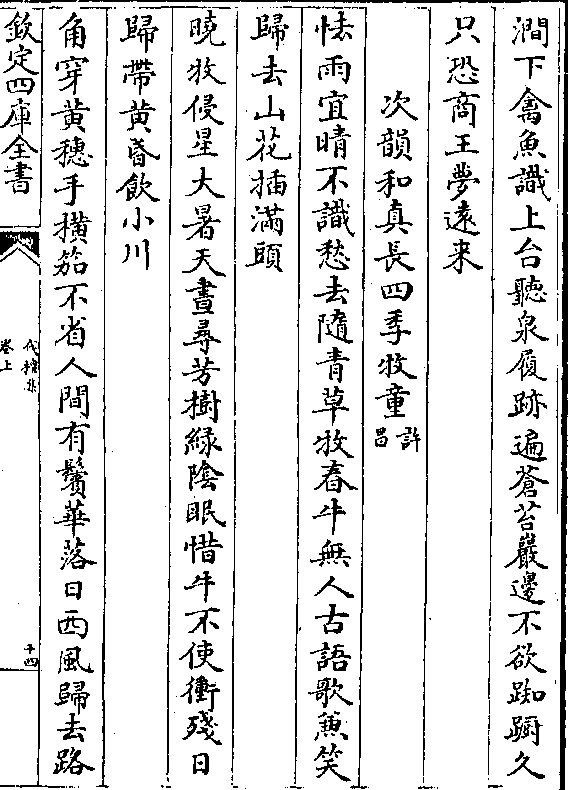 澗下禽魚識上台聽泉履跡遍蒼苔巖邊不欲踟躕久
只恐商王夢遠来
次韻和真長四季牧童許昌
怯雨宜晴不識愁去隨青草牧春牛無人古語歌兼笑
歸去山花插滿頭
曉牧侵星大暑天晝尋芳樹綠陰眠惜牛不使衝殘日
歸帶黄昏飲小川
角穿黄穗手橫笳不省人間有鬢華落日西風歸去路
欽定四庫全書
卷上
十四